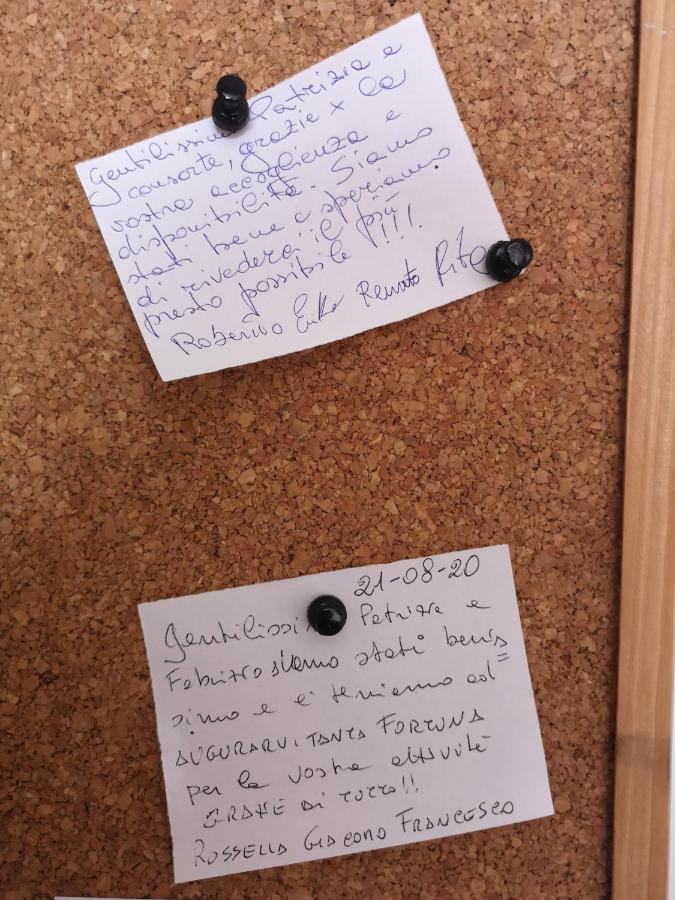 Gentilissimi Patrizia e
consorte, grazie x la
vostra accoglienza e
disponibilità. Siamo
stati bene e speriamo
di rivederci il più
presto possibile !!!
Roberto Renato Rita
21-08-20
Gentilissimi Patrizia e
Fabrizio siamo stati benis
simo e ci teniamo ad
AUGURARVI TANTA FORTUNA
per la vostra attività
GRAZIE DI TUTTO!!
ROSSELLA GIACOMO FRANCESCO